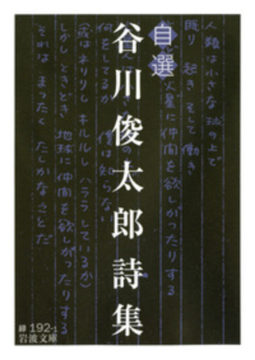 自選
谷川俊太郎詩集
人類は小さな球の上で
眠り 起き そして働き
火星に仲間を欲しがったりする
何をしてるか 僕は知らない
(或はネリリし キルルし ハララしているか)
しかしときどき 地球に仲間を欲しがったりする
それは まったく たしかなことだ
緑 192-1
岩波文庫